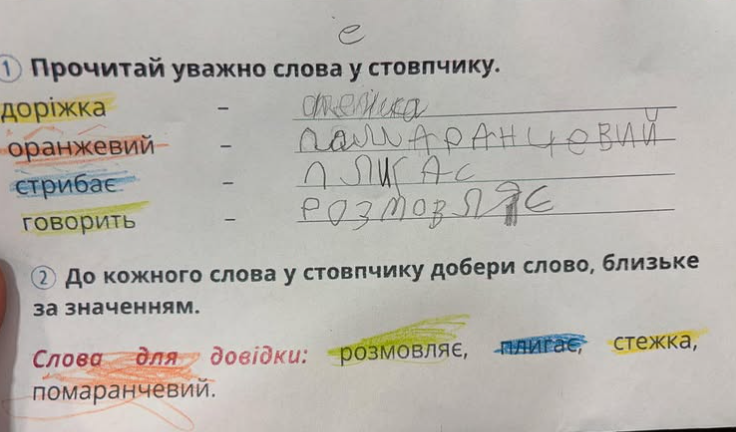 е
1 Прочитай уважно слова у стовпчику.
доріжка –
оранжевий – памАРАНЦЕВИЙ
стрибає – ПЛИГАЄ
говорить – РОЗМОВЛЯЄ
2 До кожного слова у стовпчику добери слово, близьке
за значенням.
Слова для довідки: розмовляє, плигає, стежка,
помаранчевий.